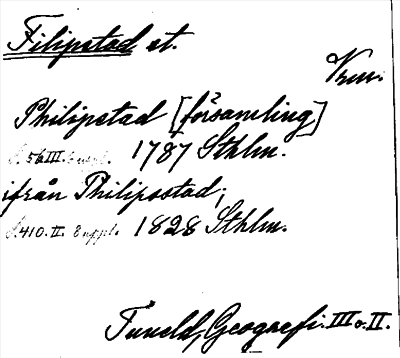 Filipstad st.
Vrml.
Philipstad [församling]
S. 56 III. Suppl. 1787 Sthlm.
ifrån Philipsstad;
S. 410. II. Suppl. 1828 Sthlm.
Tuneld, Geografi. III o. II.